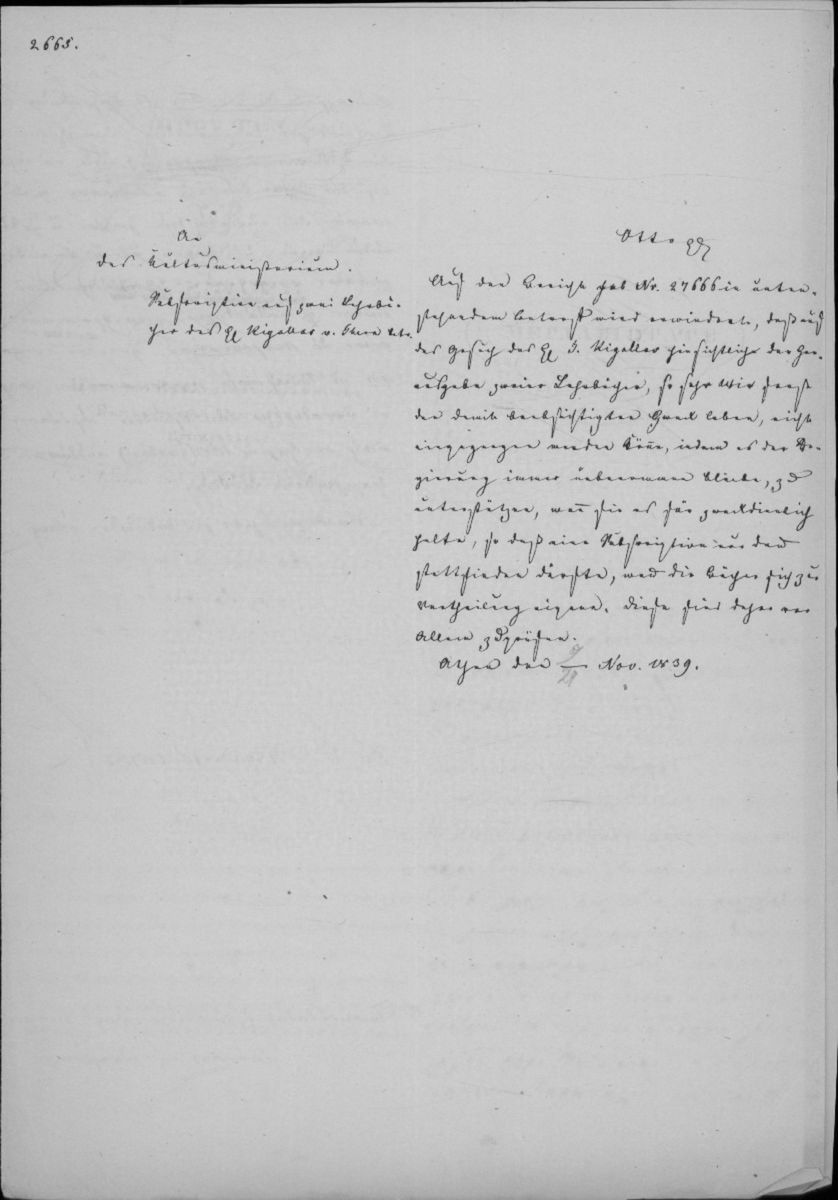 2665.
An
das Kultusministerium.
Subscription auf zwei Lehrbü-
cher des H. Rigallas v. Thera betr.
Otto
Auf den Bericht sub Nr. 27666 in unten-
stehendem Betreff wird erwiedert, daß auf
das Gesuch des H. J. Rigallas hinsichtlich der Her-
ausgabe zweier Lehrbücher, so sehr Wir sonst
den damit beabsichtigten Zweck loben, nicht
eingegangen werden könne, indem es der Re-
gierung immer unbenommen bliebe, zu
unterstützen, wenn sie es für zweckdienlich
halte, so daß eine Subscription nur dann
stattfinden dürfte, wenn die Bücher sich zur
Vertheilung eignen. Diese sind daher vor
Allem zu prüfen.
Athen den 9/21 Nov. 1839.